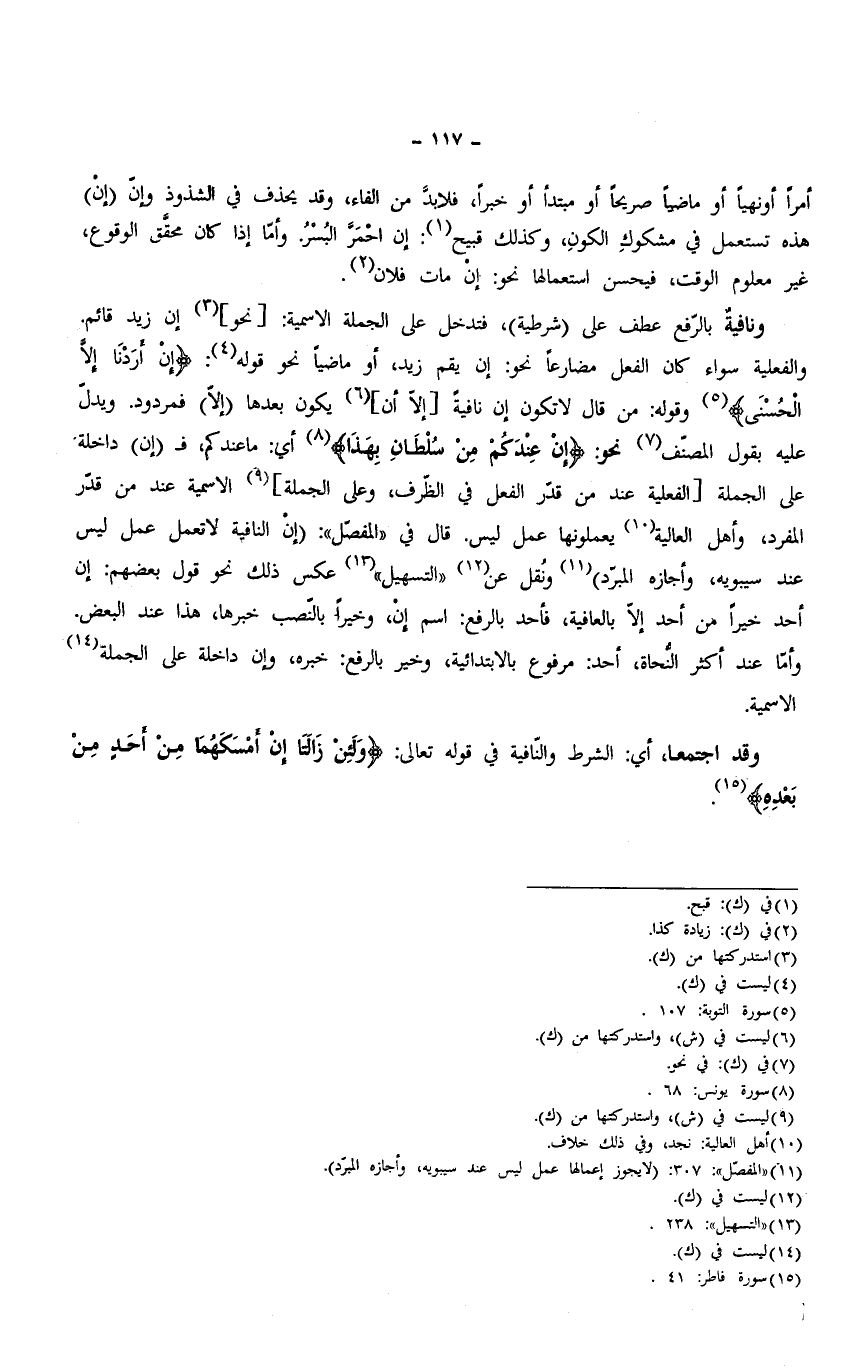 - ١١٧ -
أمراً أونهياً أو ماضياً صريحاً أو مبتدأ أو خبراً، فلابدَّ من الفاء، وقد يحذف في الشذوذ وإنّ (إنْ)
هذه تستعمل في مشكوكِ الكونِ، وكذلك قبيح(١): إن احْمَرَّ البُسْرُ. وأمّا إذا كان محقَّق الوقوع،
غير معلوم الوقت، فيحسن استعمالها نحو: إنْ مات فلان(٢).
ونافيةٌ بالرّفع عطف على (شرطية)، فتدخل على الجملة الاسمية: [نحو](٣) إن زيد قائم.
والفعلية سواء كان الفعل مضارعاً نحو: إن يقم زيد، أو ماضياً نحو قوله(٤): ﴿إِنْ أَرَدْنَا إِلاَّ
الْحُسْنَى﴾(٥) وقوله: من قال لاتكون إن نافيةً [إلاّ أن](٦) يكون بعدها (إلاّ) فمردود. ويدلّ
عليه بقول المصنّف(٧) نحو: ﴿إِنْ عِنْدَكُمْ مِنْ سُلْطَانٍ بِهَذَا﴾(٨) أي: ماعندكم، فـ (إن) داخلة
على الجملة [الفعلية عند من قدّر الفعل في الظّرف، وعلى الجملة](٩) الاسمية عند من قدّر
المفرد، وأهل العالية(١٠) يعملونها عمل ليس. قال في «المفصّل»: (إنْ النافية لاتعمل عمل ليس
عند سيبويه، وأجازه المبرّد)(١١) ونُقل عن(١٢) «التسهيل»(١٣) عكس ذلك نحو قول بعضهم: إن
أحد خيراً من أحد إلاّ بالعافية، فأحد بالرفع: اسم إنْ، وخيراً بالنّصب خبرها، هذا عند البعض.
وأمّا عند أكثر النُّحاة، أحد: مرفوع بالابتدائية، وخير بالرفع: خبره، وإن داخلة على الجملة(١٤)
الاسمية.
وقد اجتمعا، أي: الشرط والنّافية في قوله تعالى: ﴿وَلَئِنْ زَالَتَا إِنْ أَمْسَكَهُمَا مِنْ أَحَدٍ مِنْ
بَعْدِهِ﴾(١٥).
(١)في (ك): قبح.
(٢)في (ك): زيادة كذا.
(٣)استدركتها من (ك).
(٤)ليست في (ك).
(٥)سورة التوبة: ١٠٧ .
(٦)ليست في (ش)، واستدركتها من (ك).
(٧)في (ك): في نحو.
(٨)سورة يونس: ٦٨ .
(٩)ليست في (ش)، واستدركتها من (ك).
(١٠)أهل العالية: نجد، وفي ذلك خلاف.
(١١)«المفصّل»: ٣٠٧: (لايجوز إعمالها عمل ليس عند سيبويه، وأجازه المبرّد).
(١٢)ليست في (ك).
(١٣)«التسهيل»: ٢٣٨ .
(١٤)ليست في (ك).
(١٥)سورة فاطر: ٤١ .